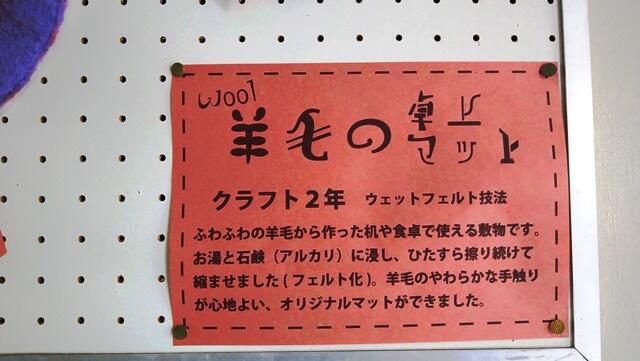 wool
羊毛の卓上マット
クラフト2年　ウェットフェルト技法
ふわふわの羊毛から作った机や食卓で使える敷物です。
お湯と石鹸（アルカリ）に浸し、ひたすら擦り続けて
縮ませました(フェルト化)。羊毛のやわらかな手触り
が心地よい、オリジナルマットができました。